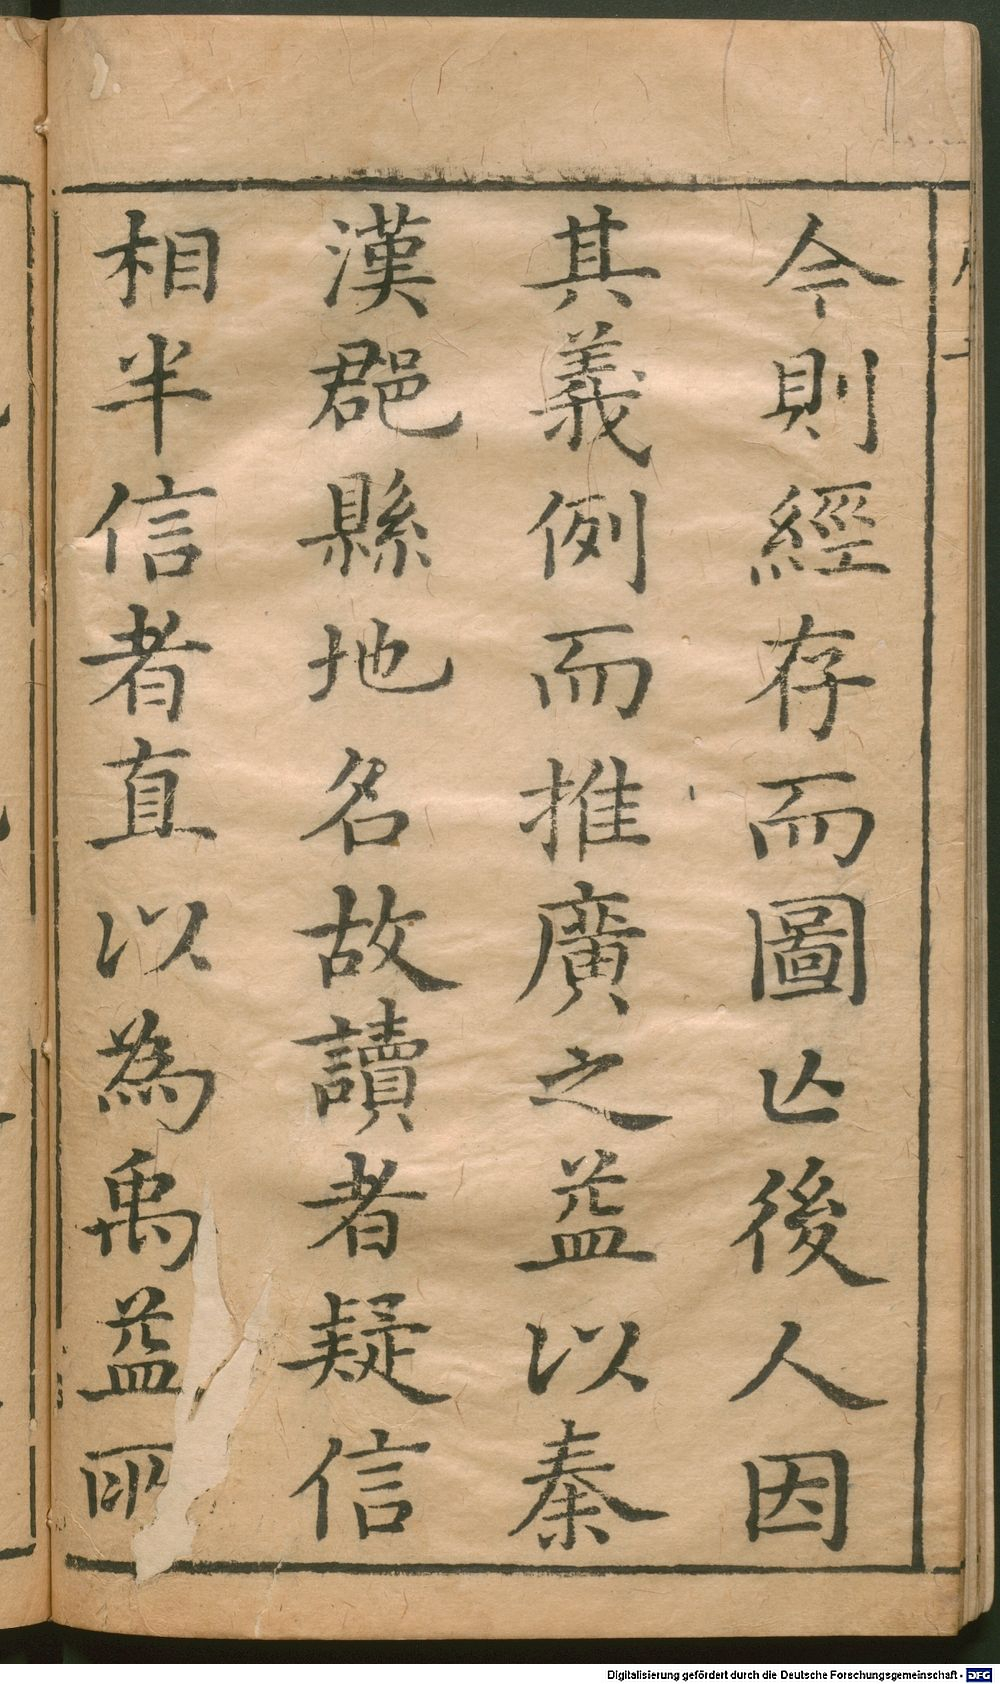 今則經存而圖亾後人因
其義例而推廣之益以秦
漢郡縣地名故讀者疑信
相半信者直以為禹益所
Digitalisierung gefördert durch die Deutsche Forschungsgemeinschaft - DFG